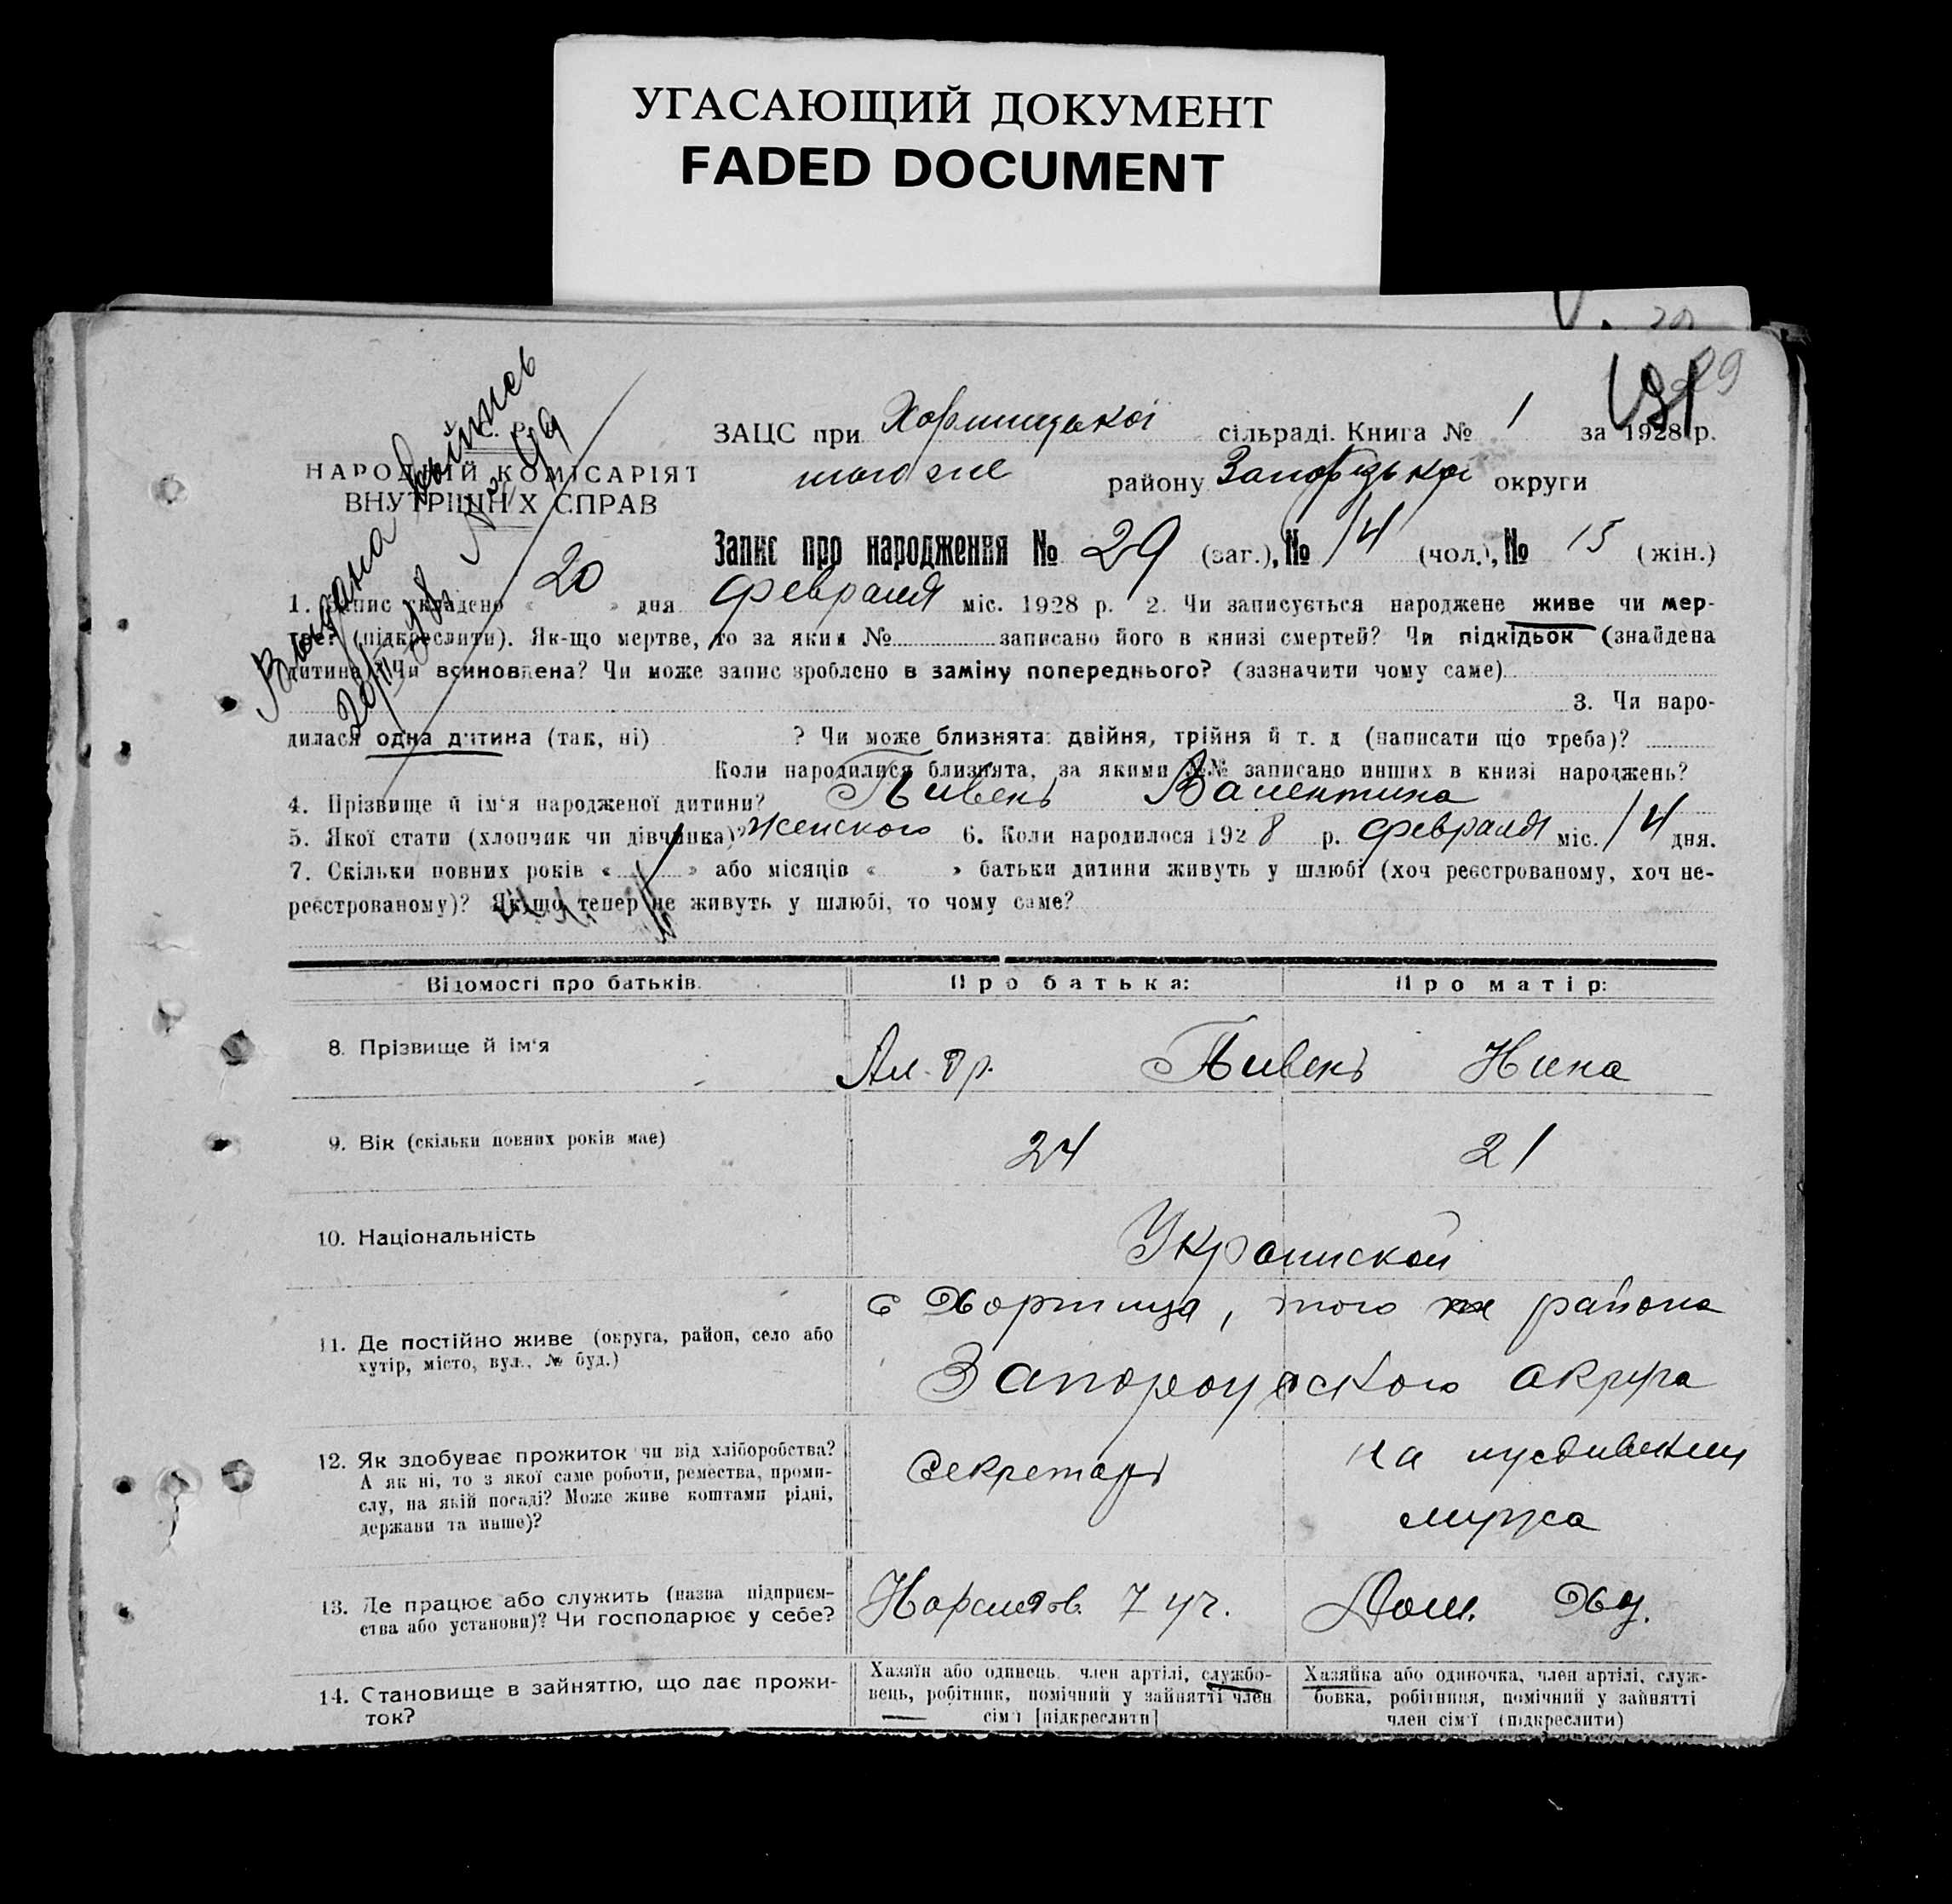 УГАСАЮЩИЙ ДОКУМЕНТ
FADED DOCUMENT
29
Выдана выпись
№ 49
НАРОДНІЙ КОМІСАРІЯТ
ВНУТРІШНІХ СПРАВ
ЗАЦС при Хортицької сільраді. Книга № 1 за 1928 р.
того же району Запорізької округи
Запис про народження № 29 (заг.), № 14 (чол.), № 15 (жін.)
1. Запис складено « 20 » дня февраля міс. 1928 р. 2. Чи записується народжене живе чи мер-
тве? (підкреслити). Як-що мертве, то за яким № записано його в книзі смертей? Чи підкідьок (знайдена
дитина)? Чи всиновлена? Чи може запис зроблено в заміну попереднього? (зазначити чому саме)
3. Чи наро-
дилася одна дитина (так, ні) ? Чи може близнята: двійня, трійня й т. д (написати що треба)?
Коли народилися близнята, за якими №№ записано инших в книзі народжень?
4. Прізвище й ім'я народженої дитини? Пивень Валентина
5. Якої стати (хлопчик чи дівчинка)? Женского 6. Коли народилося 1928 р. февраля міс. 14 дня.
7. Скільки повних років « » або місяців « » батьки дитини живуть у шлюбі (хоч реєстрованому, хоч не-
реєстрованому)? Як-що тепер не живуть у шлюбі, то чому саме?
Відомості про батьків. Про батька: Про матір:
8. Прізвище й ім'я Ал-др. Пивень Нина
9. Вік (скільки повних років має) 24 21
10. Національність Украинской
11. Де постійно живе (округа, район, село або
хутір, місто, вул., № буд.)
с Хортица, того же района
Запорожского округа
12. Як здобуває прожиток чи від хліборобства?
А як ні, то з якої саме роботи, ремества, проми-
слу, на якій посаді? Може живе коштами рідні,
держави та инше)?
Секретарь
на иждивении
мужа
13. Де працює або служить (назва підприєм-
ства або установи)? Чи господарює у себе?
7 уч. Дом. Хоз.
14. Становище в зайняттю, що дає прожи-
ток?
Хазяїн або одинець, член артілі, службо-
вець, робітник, помічний у зайнятті член
сім'ї [підкреслити]
Хазяйка або одиночка, член артілі, служ-
бовка, робітниця, помічний у зайнятті
член сім'ї (підкреслити)